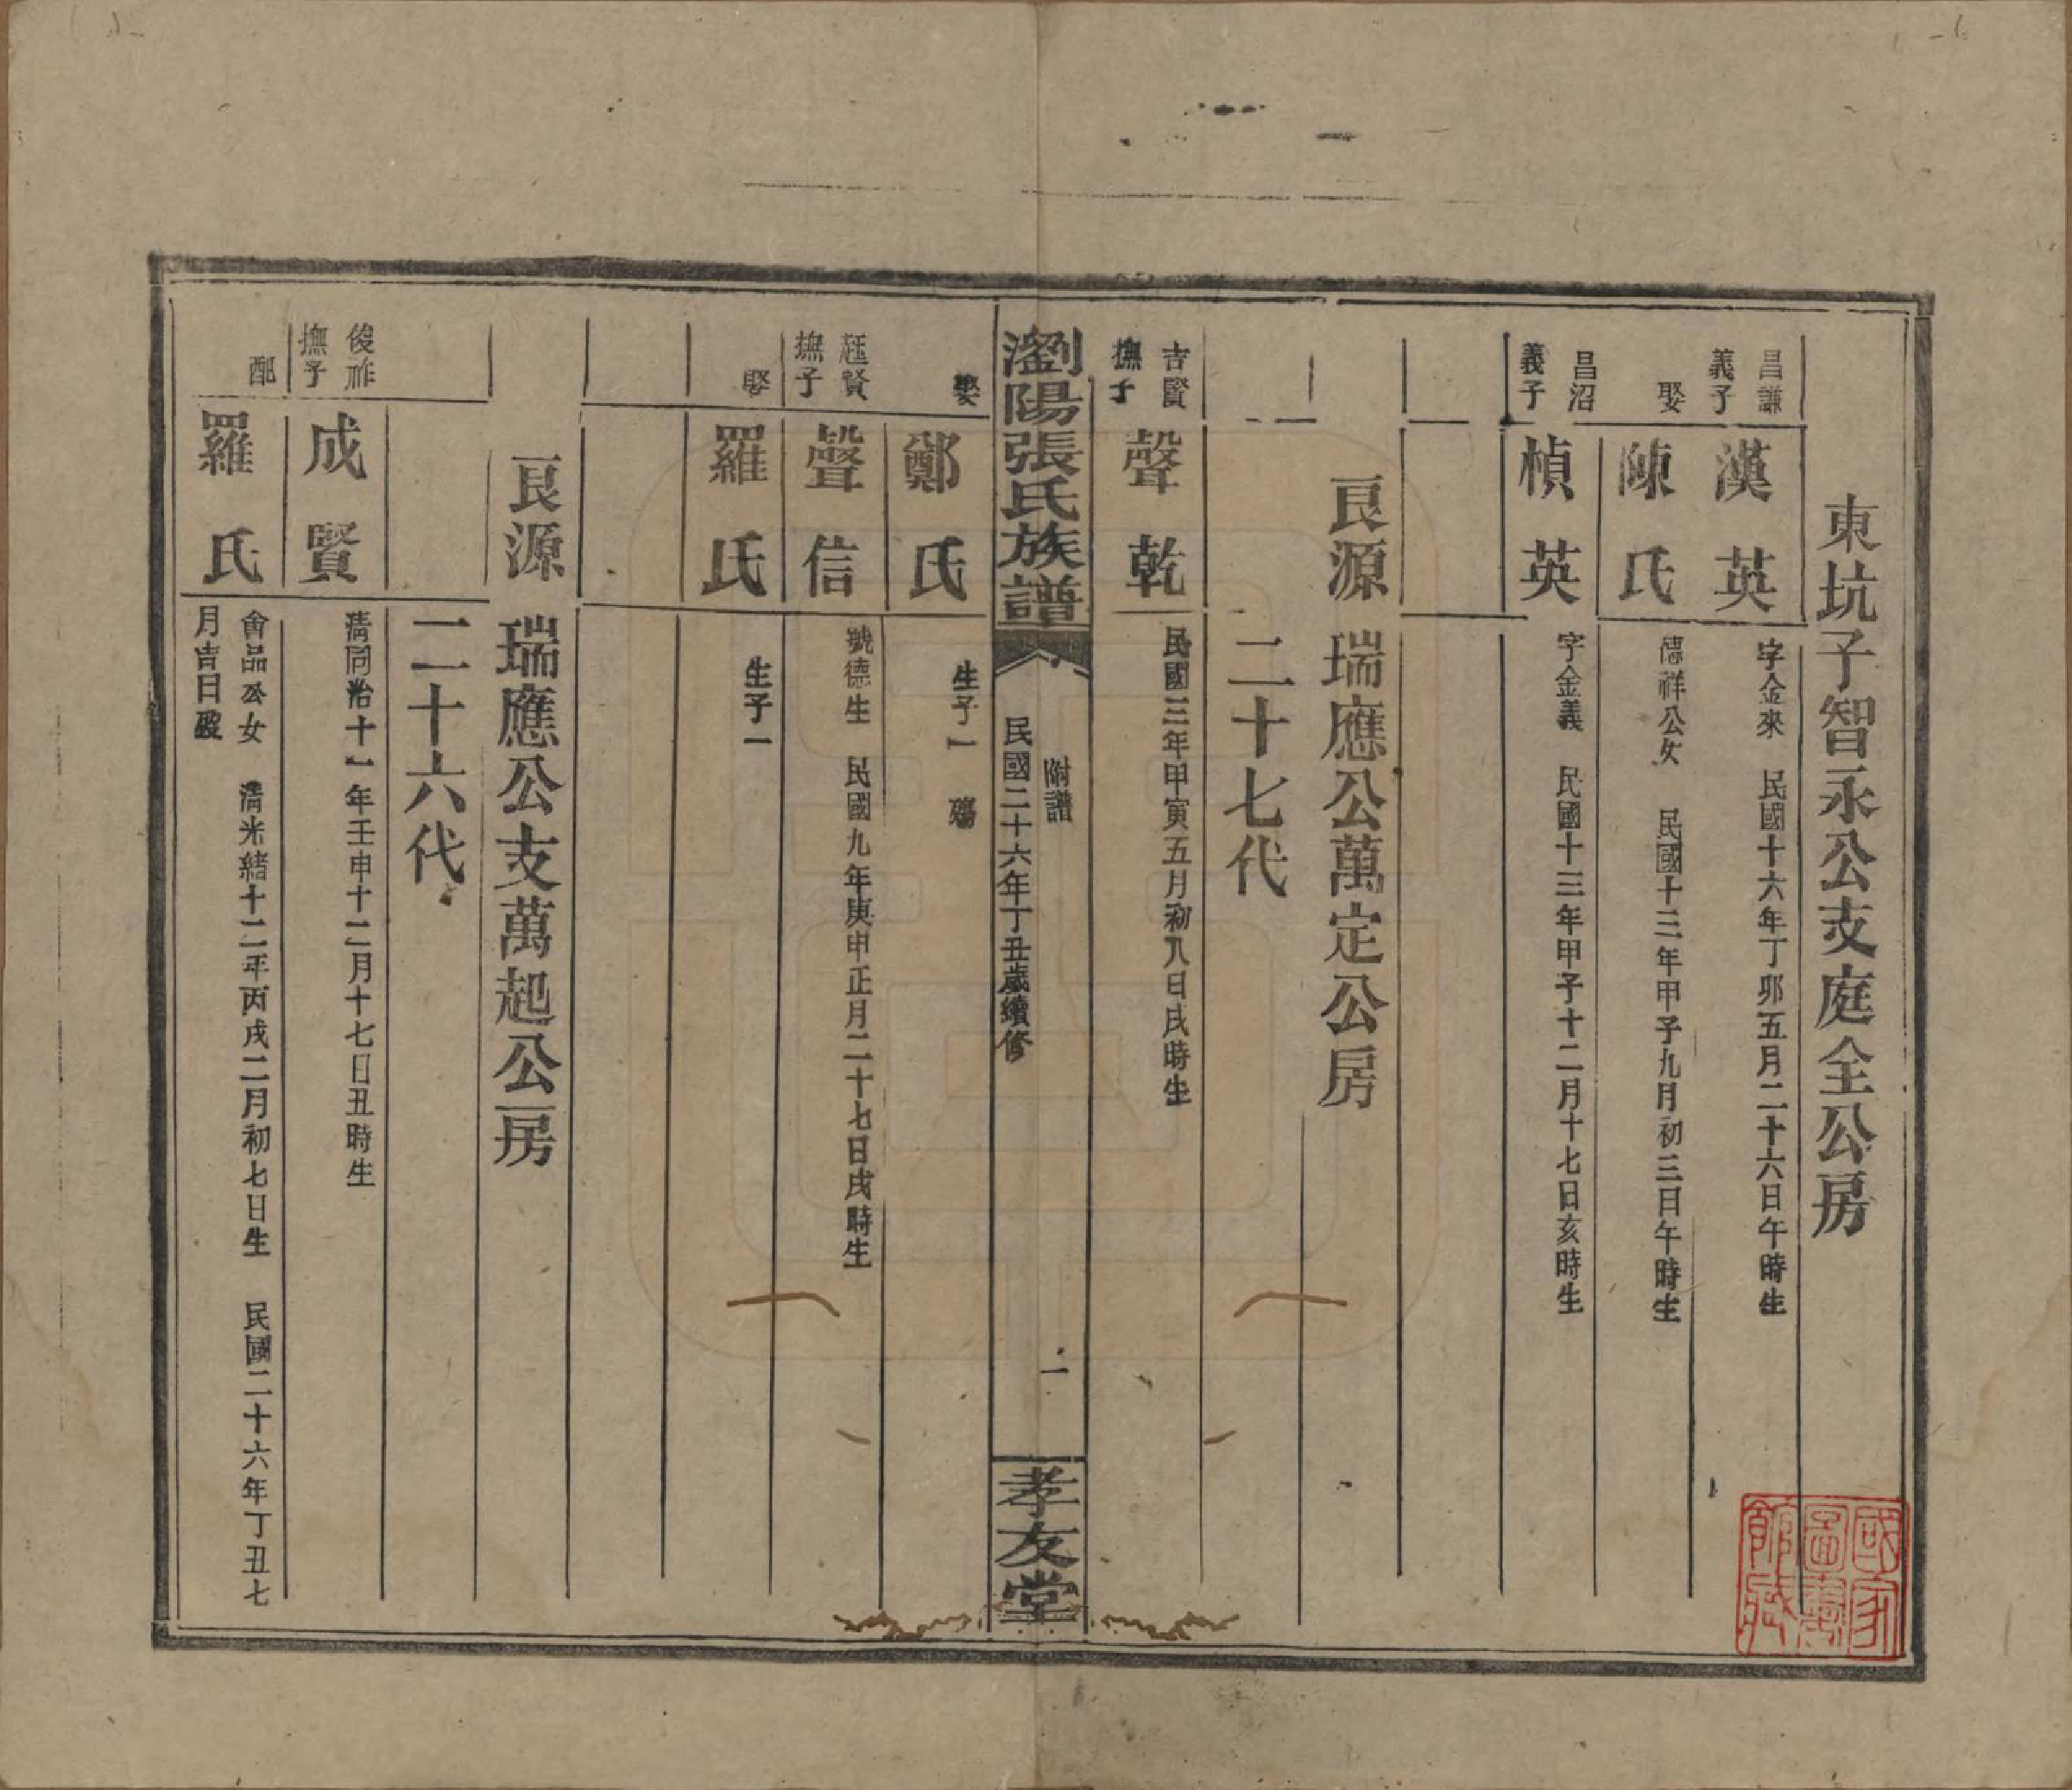 東坑子智永公支庭全公房
昌謙義子
漢英
字金來 民國十六年丁卯五月二十六日午時生
娶
陳氏
德祥公女 民國十三年甲子九月初三日午時生
昌沼義子
楨英
字金義 民國十三年甲子十二月十七日亥時生
良源 瑞應公萬定公房
二十七代
吉賢撫子
聲乾
民國三年甲寅五月初八日戌時生
瀏陽張氏族譜
附譜
民國二十六年丁丑歲續修
一
孝友堂
娶
鄭氏
生子一 殤
廷賢撫子
聲信
號德生 民國九年庚申正月二十七日戌時生
娶
羅氏
生子一
良源 瑞應公支萬起公房
二十六代
俊祚撫子
成賢
清同治十一年壬申十二月十七日丑時生
配
羅氏
會品公女 清光緒十二年丙戌二月初七日生 民國二十六年丁丑七
月吉日歿
國家圖書館藏